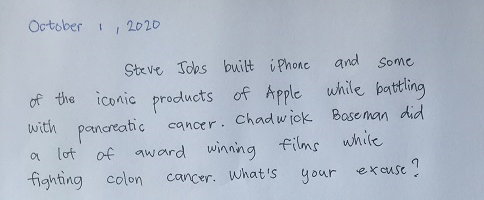 October 1, 2020
Steve Jobs built iPhone and some
of the iconic products of Apple while battling
with pancreatic cancer. Chadwick Boseman did
a lot of award winning films while
fighting colon cancer. What's your excuse?